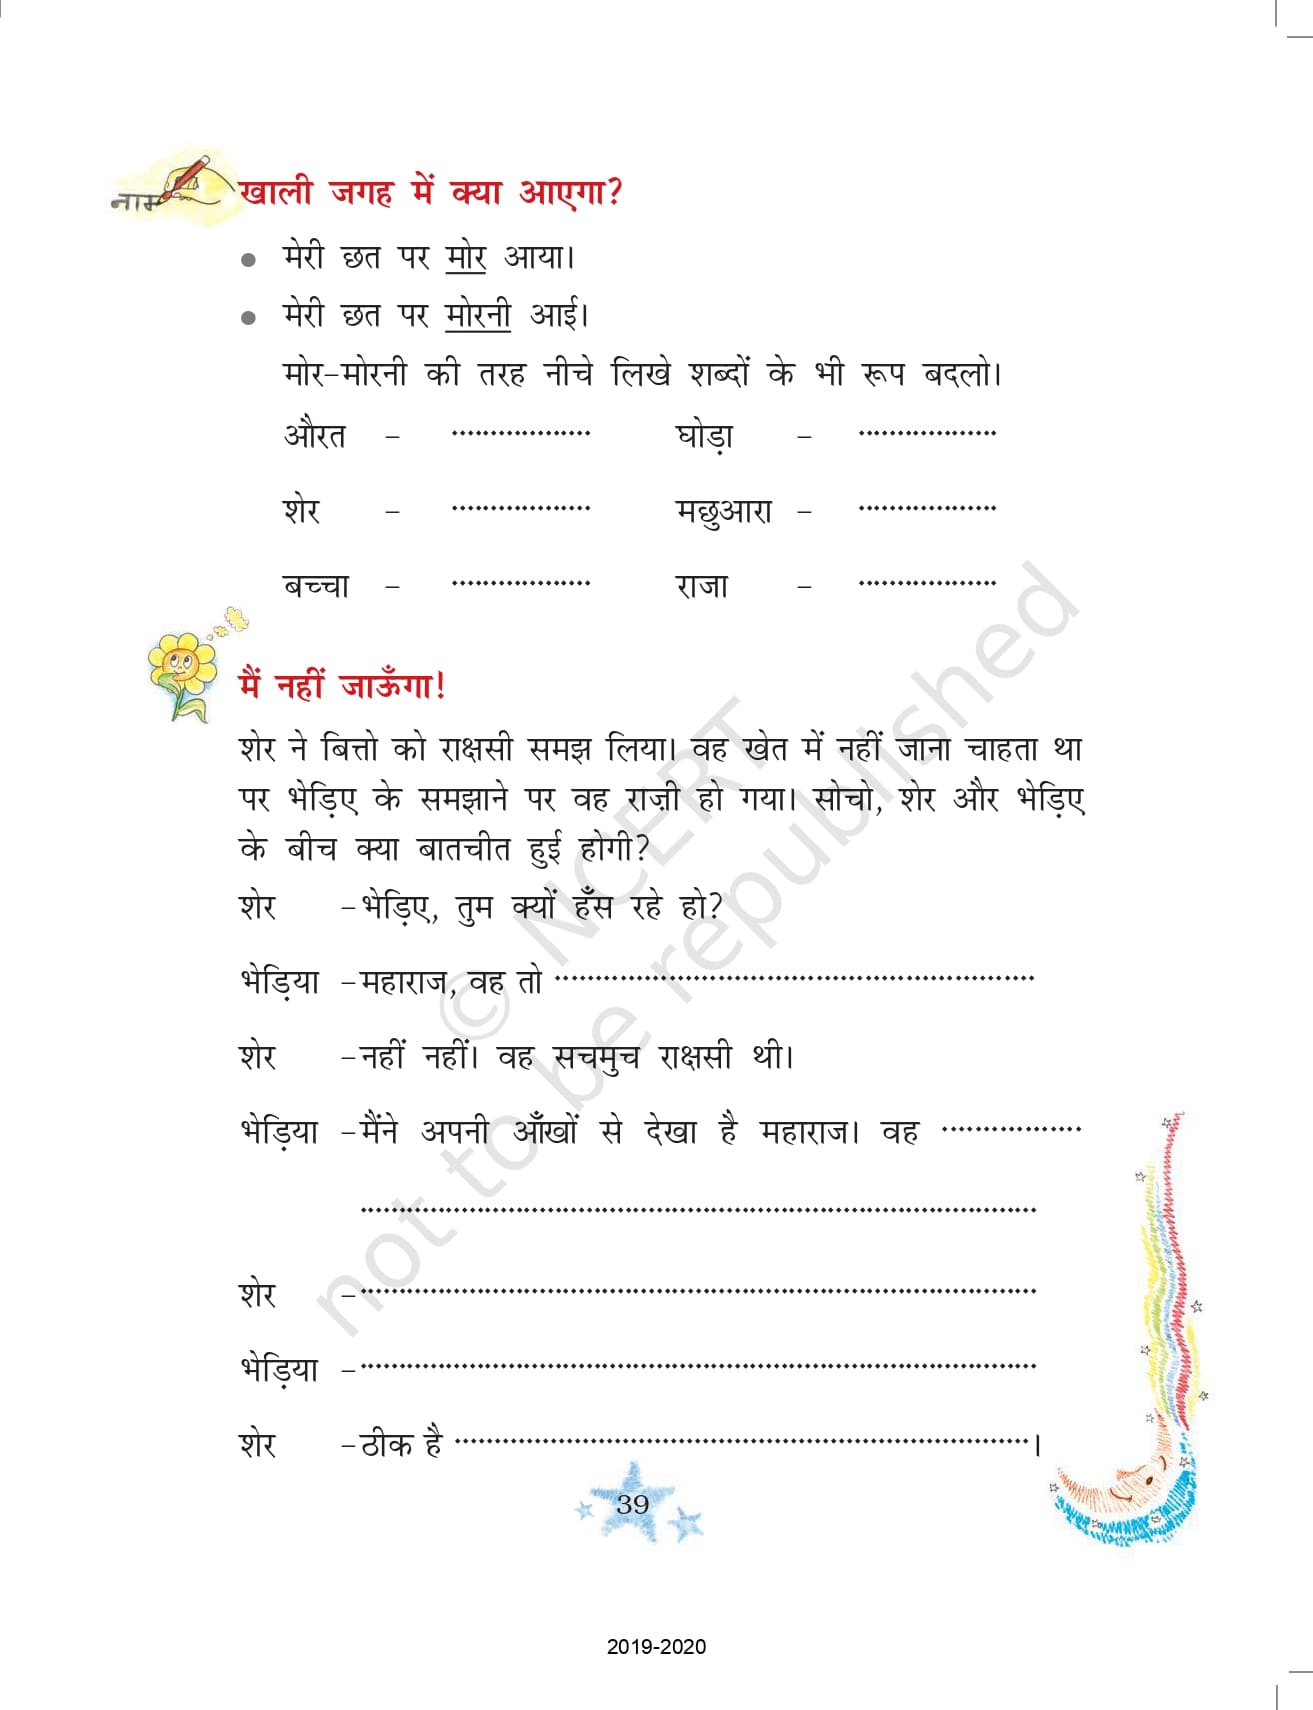 नाम
खाली जगह में क्या आएगा?
• मेरी छत पर मोर आया।
• मेरी छत पर मोरनी आई।
मोर–मोरनी की तरह नीचे लिखे शब्दों के भी रूप बदलो।
औरत – .................. घोड़ा – ..................
शेर – .................. मछुआरा – ..................
बच्चा – .................. राजा – ..................
मैं नहीं जाऊँगा!
शेर ने बित्तो को राक्षसी समझ लिया। वह खेत में नहीं जाना चाहता था
पर भेड़िए के समझाने पर वह राज़ी हो गया। सोचो, शेर और भेड़िए
के बीच क्या बातचीत हुई होगी?
शेर – भेड़िए, तुम क्यों हँस रहे हो?
भेड़िया – महाराज, वह तो ..................
शेर – नहीं नहीं। वह सचमुच राक्षसी थी।
भेड़िया – मैंने अपनी आँखों से देखा है महाराज। वह ..................
..................
शेर – ..................
भेड़िया – ..................
शेर – ठीक है ..................।
39
2019-2020
© NCERT
not to be republished